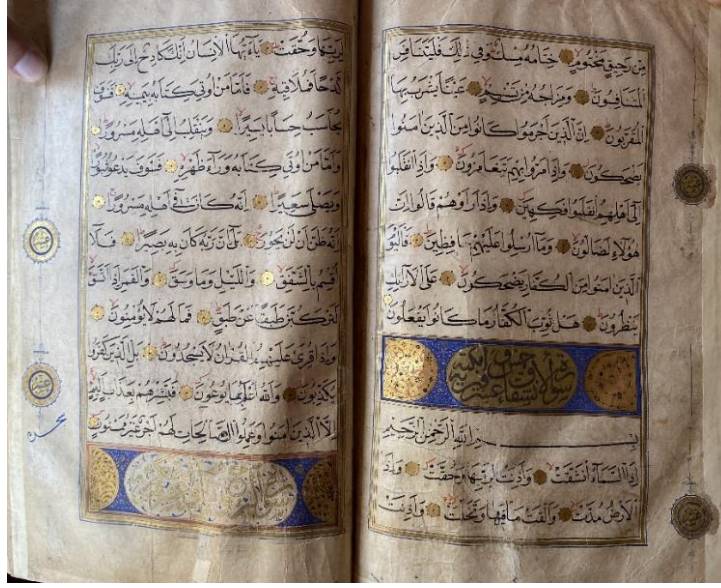 مِنْ رَحِيقٍ مَخْتُومٍ خِتَامُهُ مِسْكٌ وَفِي ذَلِكَ فَلْيَتَنَافَسِ
الْمُتَنَافِسُونَ وَمِزَاجُهُ مِنْ تَسْنِيمٍ عَيْنًا يَشْرَبُ بِهَا
الْمُقَرَّبُونَ إِنَّ الَّذِينَ أَجْرَمُوا كَانُوا مِنَ الَّذِينَ آمَنُوا
يَضْحَكُونَ وَإِذَا مَرُّوا بِهِمْ يَتَغَامَزُونَ وَإِذَا انْقَلَبُوا
إِلَى أَهْلِهِمُ انْقَلَبُوا فَكِهِينَ وَإِذَا رَأَوْهُمْ قَالُوا إِنَّ
هَؤُلَاءِ لَضَالُّونَ وَمَا أُرْسِلُوا عَلَيْهِمْ حَافِظِينَ فَالْيَوْمَ
الَّذِينَ آمَنُوا مِنَ الْكُفَّارِ يَضْحَكُونَ عَلَى الْأَرَائِكِ
يَنْظُرُونَ هَلْ ثُوِّبَ الْكُفَّارُ مَا كَانُوا يَفْعَلُونَ
سورة الانشقاق
بِسْمِ اللَّهِ الرَّحْمَنِ الرَّحِيمِ
إِذَا السَّمَاءُ انْشَقَّتْ وَأَذِنَتْ لِرَبِّهَا وَحُقَّتْ وَإِذَا
الْأَرْضُ مُدَّتْ وَأَلْقَتْ مَا فِيهَا وَتَخَلَّتْ وَأَذِنَتْ
لِرَبِّهَا وَحُقَّتْ يَا أَيُّهَا الْإِنْسَانُ إِنَّكَ كَادِحٌ إِلَى رَبِّكَ
كَدْحًا فَمُلَاقِيهِ فَأَمَّا مَنْ أُوتِيَ كِتَابَهُ بِيَمِينِهِ فَسَوْفَ
يُحَاسَبُ حِسَابًا يَسِيرًا وَيَنْقَلِبُ إِلَى أَهْلِهِ مَسْرُورًا
وَأَمَّا مَنْ أُوتِيَ كِتَابَهُ وَرَاءَ ظَهْرِهِ فَسَوْفَ يَدْعُو ثُبُورًا
وَيَصْلَى سَعِيرًا إِنَّهُ كَانَ فِي أَهْلِهِ مَسْرُورًا
إِنَّهُ ظَنَّ أَنْ لَنْ يَحُورَ بَلَى إِنَّ رَبَّهُ كَانَ بِهِ بَصِيرًا فَلَا
أُقْسِمُ بِالشَّفَقِ وَاللَّيْلِ وَمَا وَسَقَ وَالْقَمَرِ إِذَا اتَّسَقَ
لَتَرْكَبُنَّ طَبَقًا عَنْ طَبَقٍ فَمَا لَهُمْ لَا يُؤْمِنُونَ
وَإِذَا قُرِئَ عَلَيْهِمُ الْقُرْآنُ لَا يَسْجُدُونَ بَلِ الَّذِينَ كَفَرُوا
يُكَذِّبُونَ وَاللَّهُ أَعْلَمُ بِمَا يُوعُونَ فَبَشِّرْهُمْ بِعَذَابٍ أَلِيمٍ
إِلَّا الَّذِينَ آمَنُوا وَعَمِلُوا الصَّالِحَاتِ لَهُمْ أَجْرٌ غَيْرُ مَمْنُونٍ
سجده